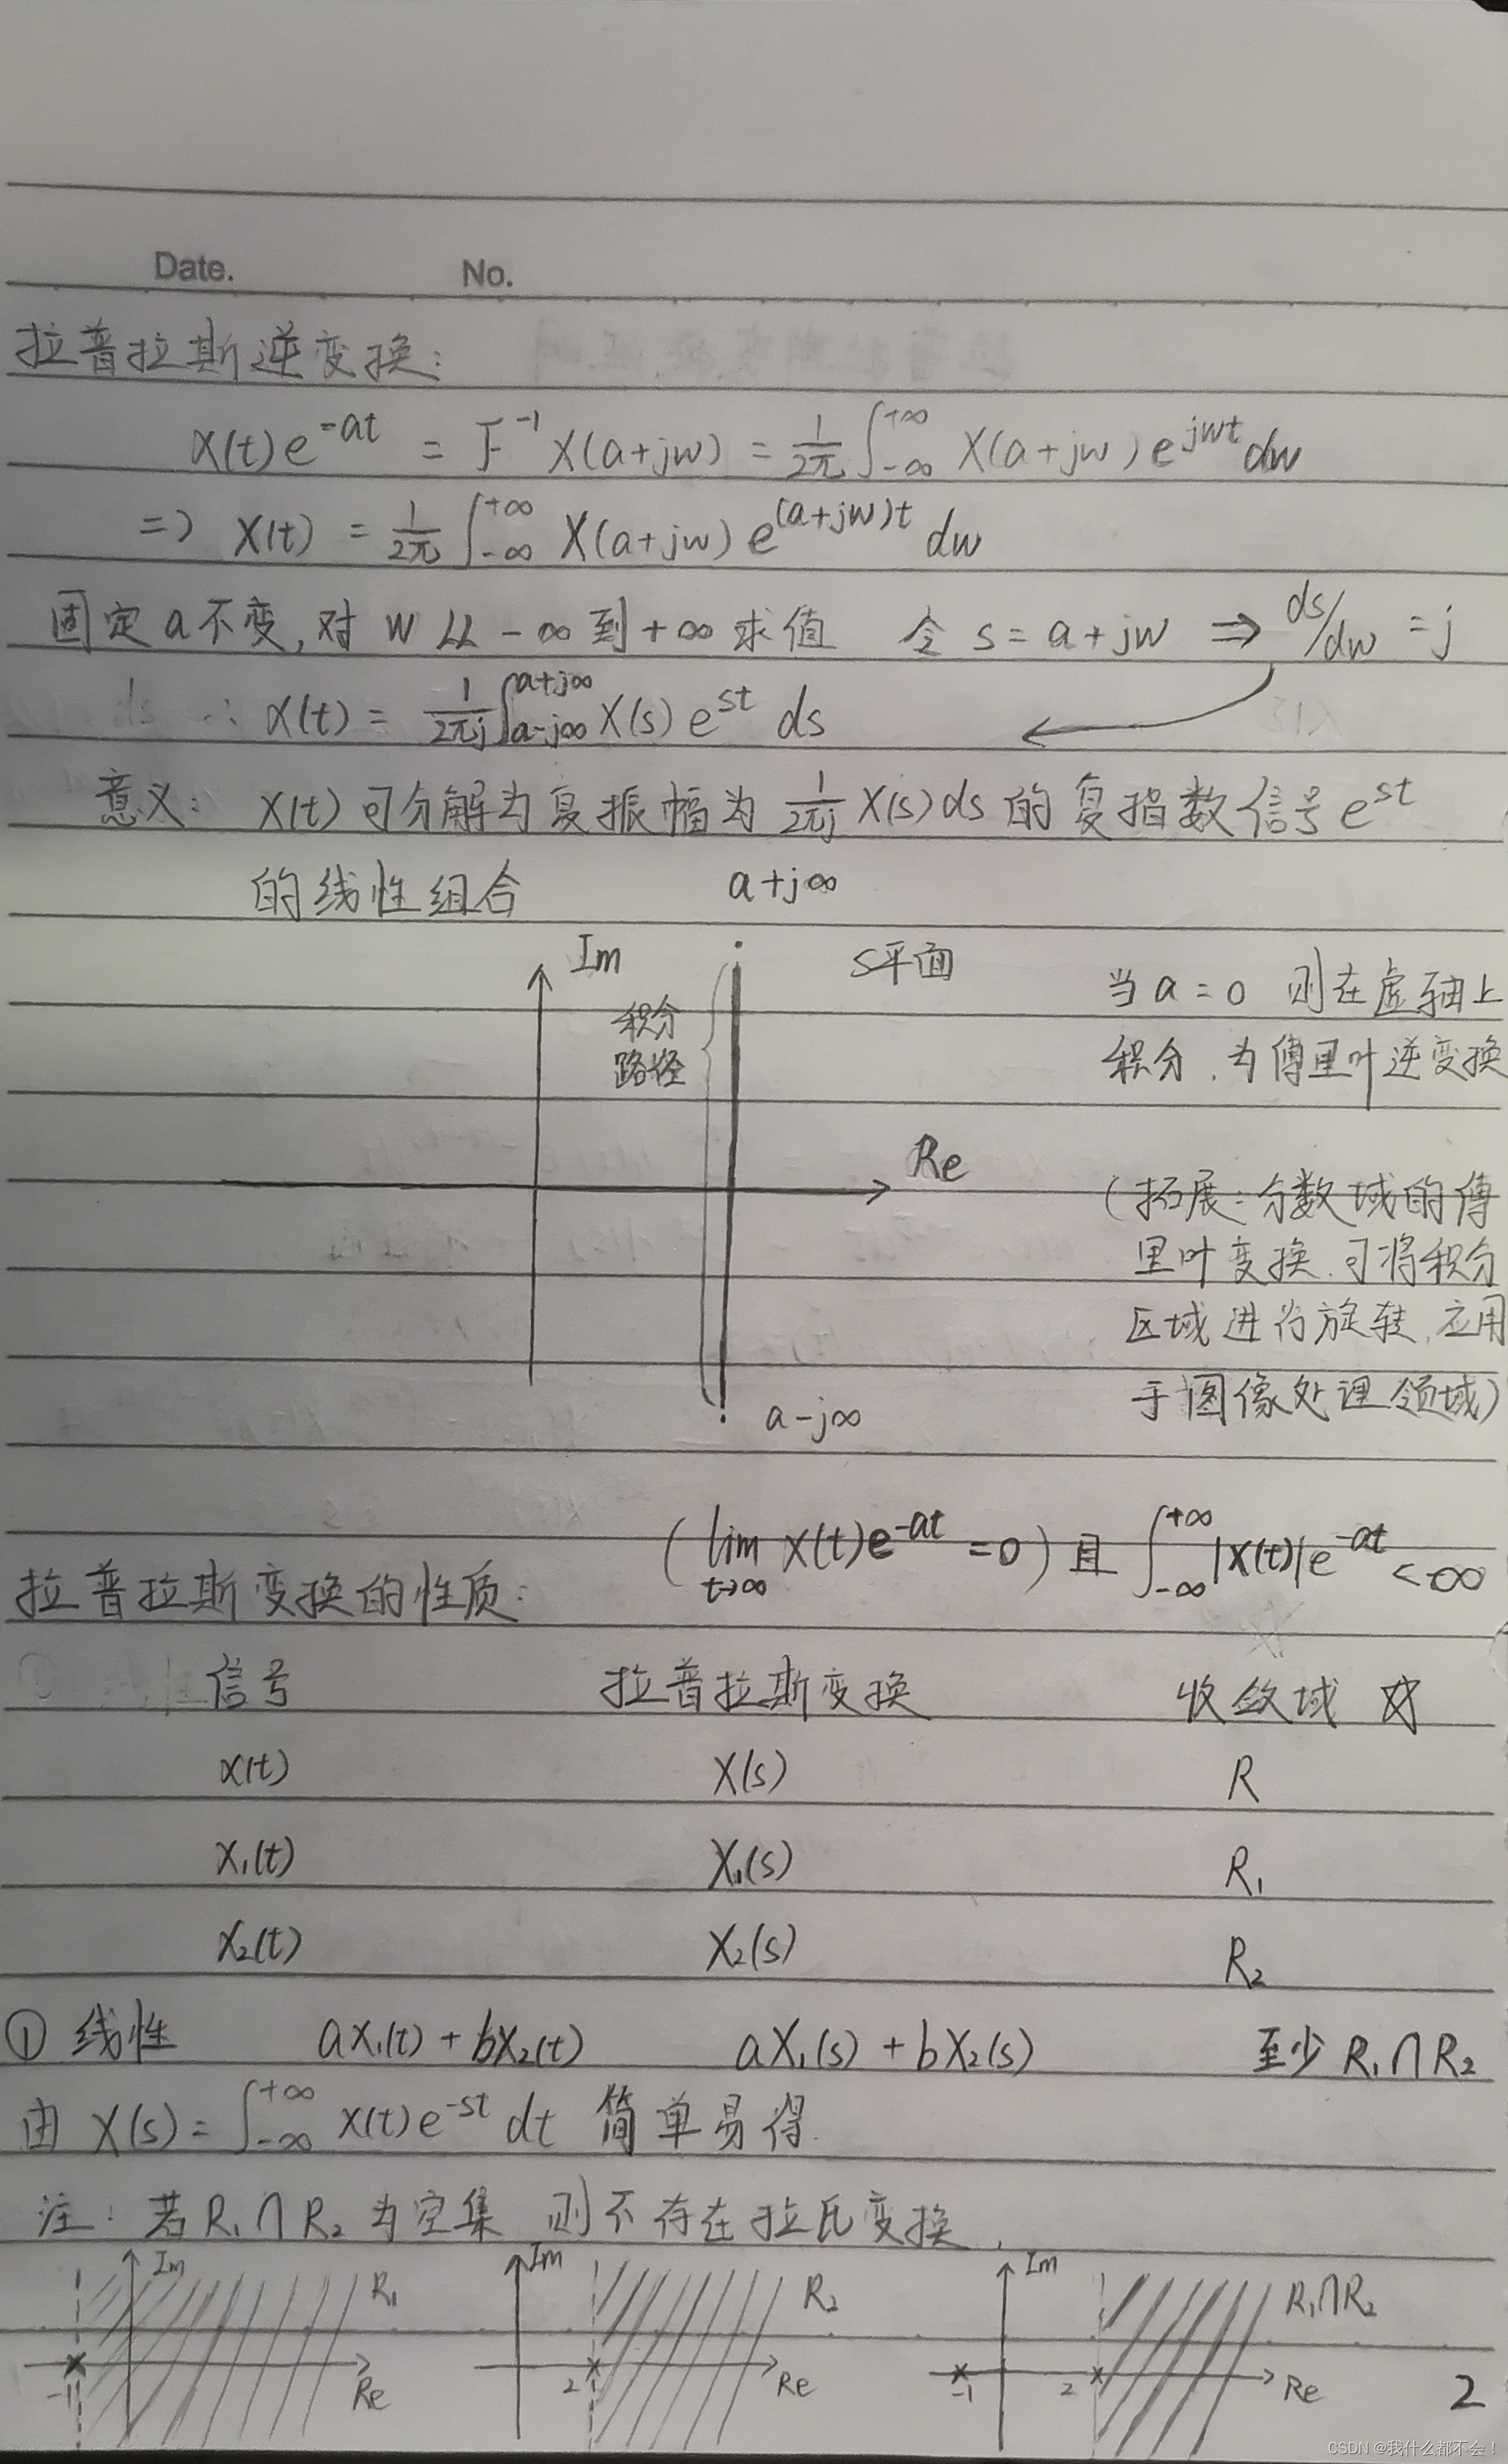 Date. No.
拉普拉斯逆变换:
x(t)e^{-at} = F^{-1} X(a+jw) = \frac{1}{2π} ∫_{-∞}^{+∞} X(a+jw) e^{jwt} dw
=> x(t) = \frac{1}{2π} ∫_{-∞}^{+∞} X(a+jw) e^{(a+jw)t} dw
固定a不变,对w从-∞到+∞求值 令 s=a+jw ⇒ ds/dw = j
∴ x(t) = \frac{1}{2πj} ∫_{a-j∞}^{a+j∞} X(s) e^{st} ds
意义: x(t)可分解为复振幅为 \frac{1}{2πj} X(s)ds 的复指数信号 e^{st}
的线性组合
a+j∞
Im
S平面
积分
路径
Re
a-j∞
当a=0 则在虚轴上
积分.为傅里叶逆变换
(拓展:分数域的傅
里叶变换.可将积分
区域进行旋转,应用
于图像处理领域)
(lim_{t→∞} x(t)e^{-at} =0) 且 ∫_{-∞}^{+∞} |x(t)|e^{-at} <∞
拉普拉斯变换的性质:
信号 拉普拉斯变换 收敛域
x(t) X(s) R
x₁(t) X₁(s) R₁
x₂(t) X₂(s) R₂
① 线性 ax₁(t)+bx₂(t) aX₁(s)+bX₂(s) 至少 R₁∩R₂
由 X(s)= ∫_{-∞}^{+∞} x(t)e^{-st} dt 简单易得.
注:若R₁∩R₂为空集 则不存在拉氏变换.
Im R₁ Im R₂ Im R₁∩R₂
-1 Re 2 Re -1 2 Re
2
CSDN @我什么都不会！